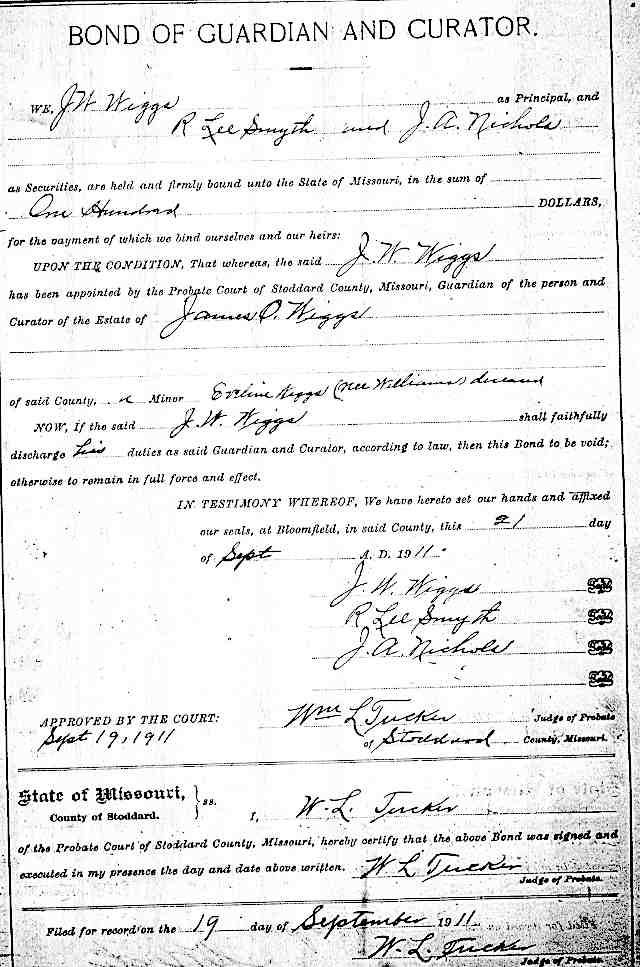 BOND OF GUARDIAN AND CURATOR.
WE, J W Wiggs as Principal, and
R Lee Smyth and J. A. Nichols
as Securities, are held and firmly bound unto the State of Missouri, in the sum of
One Hundred DOLLARS,
for the payment of which we bind ourselves and our heirs:
UPON THE CONDITION, That whereas, the said J. W. Wiggs
has been appointed by the Probate Court of Stoddard County, Missouri, Guardian of the person and
Curator of the Estate of James O. Wiggs
of said County, a Minor Eveline Wiggs (nee Williams) deceased
NOW, if the said J. W. Wiggs shall faithfully
discharge his duties as said Guardian and Curator, according to law, then this Bond to be void;
otherwise to remain in full force and effect.
IN TESTIMONY WHEREOF, We have hereto set our hands and affixed
our seals, at Bloomfield, in said County, this 21 day
of Sept A. D. 1911.
J. W. Wiggs Seal
R Lee Smyth Seal
J. A. Nichols Seal
Seal
APPROVED BY THE COURT: Wm L Tucker Judge of Probate
Sept 19, 1911 of Stoddard County, Missouri.
State of Missouri, } ss.
County of Stoddard. I, W. L. Tucker
of the Probate Court of Stoddard County, Missouri, hereby certify that the above Bond was signed and
executed in my presence the day and date above written. W L Tucker
Judge of Probate.
Filed for record on the 19 day of September 1911.
W. L. Tucker
Judge of Probate.